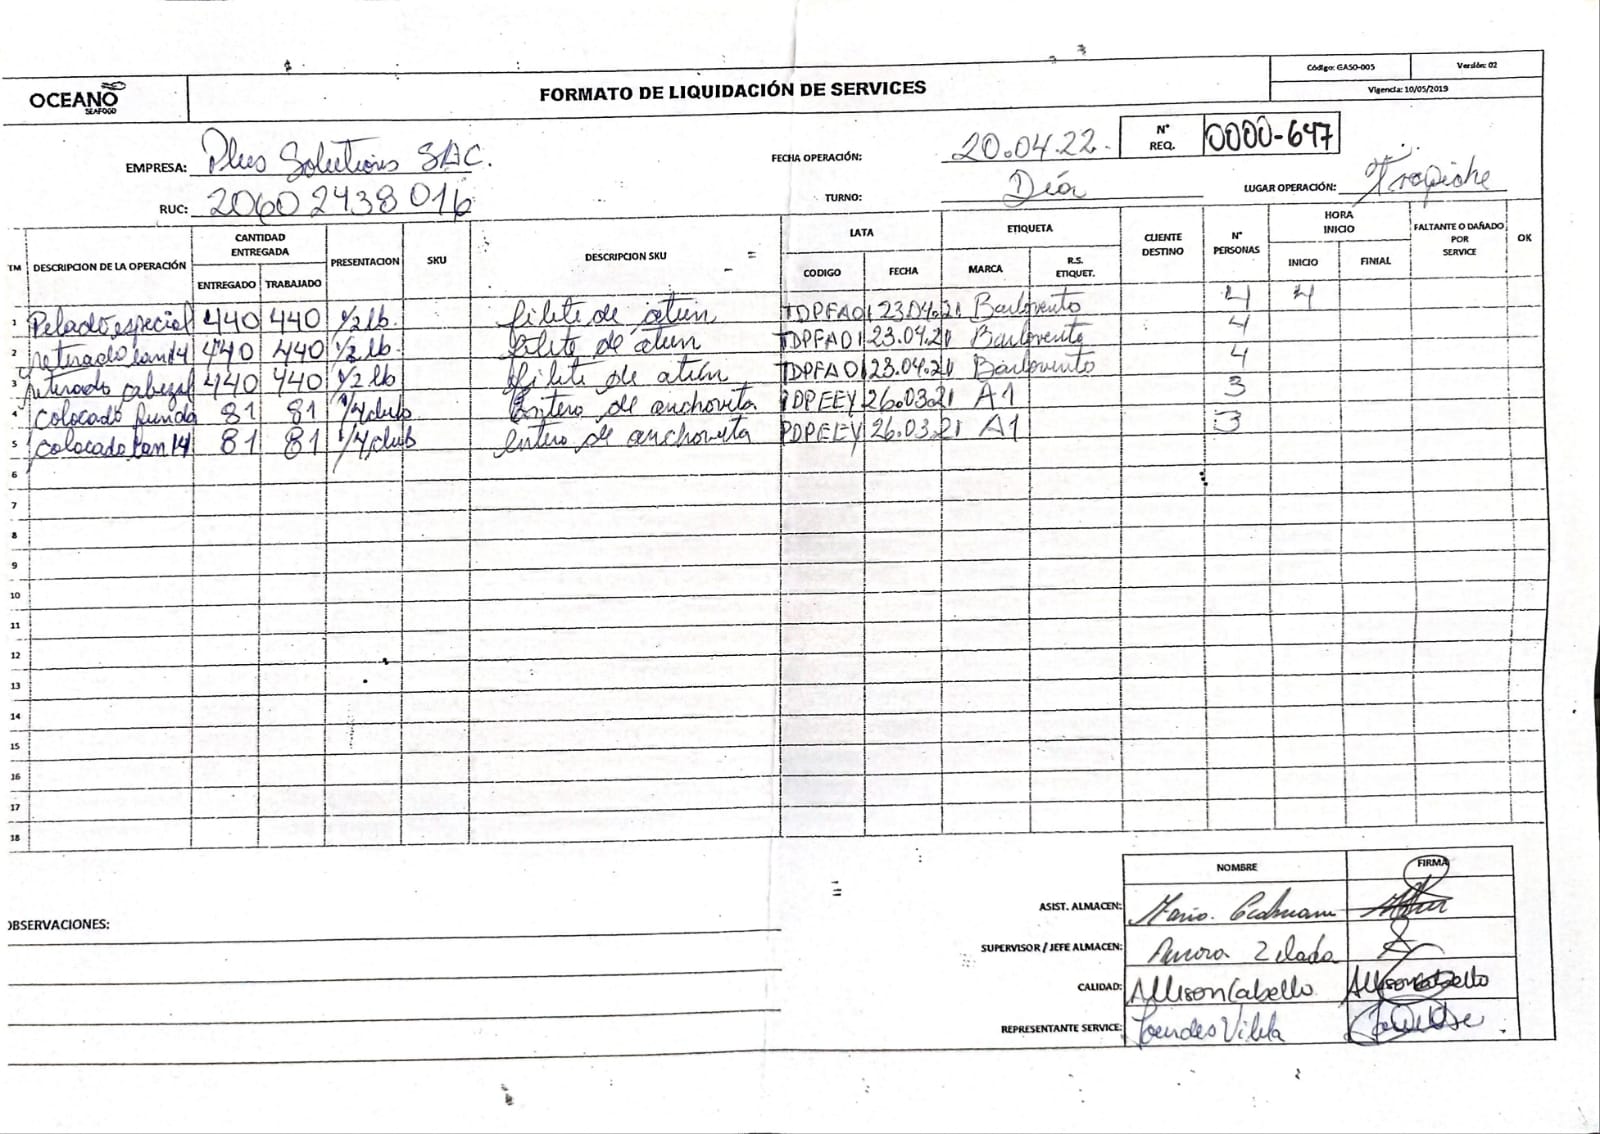 OCEANO
SEAFOOD
FORMATO DE LIQUIDACIÓN DE SERVICES
Código: GASO-005
Versión: 02
Vigencia: 10/05/2019
EMPRESA: Plus Solutions SAC.
FECHA OPERACIÓN: 20.04.22.
N° REQ. 0000-647
RUC: 20602438016
TURNO: Día
LUGAR OPERACIÓN: Tropiche
TM DESCRIPCION DE LA OPERACIÓN CANTIDAD ENTREGADA ENTREGADO TRABAJADO PRESENTACION SKU DESCRIPCION SKU LATA CODIGO FECHA ETIQUETA MARCA R.S. ETIQUET. CLIENTE DESTINO N° PERSONAS HORA INICIO INICIO FINIAL FALTANTE O DAÑADO POR SERVICE OK
1 Pelado especial 440 440 1/2 lb. filete de atun TDPFA01 23.04.21 Barlovento 4 4
2 retirado 440 440 1/2 lb. filete de atun TDPFA01 23.04.21 Barlovento 4
3 retirado cabezal 440 440 1/2 lb filete de atún TDPFA01 23.04.21 Barlovento 4
4 Colocado funda 81 81 1/4 club entero de anchoveta PDPEEY 26.03.21 A1 3
5 colocado 81 81 1/4 club entero de anchoveta PDPEEY 26.03.21 A1 3
6
7
8
9
10
11
12
13
14
15
16
17
18
NOMBRE FIRMA
OBSERVACIONES:
ASIST. ALMACEN: Mario.
SUPERVISOR / JEFE ALMACEN: Aurora Zelada
CALIDAD: Allison Cabello Allison Cabello
REPRESENTANTE SERVICE: Lourdes Vilela